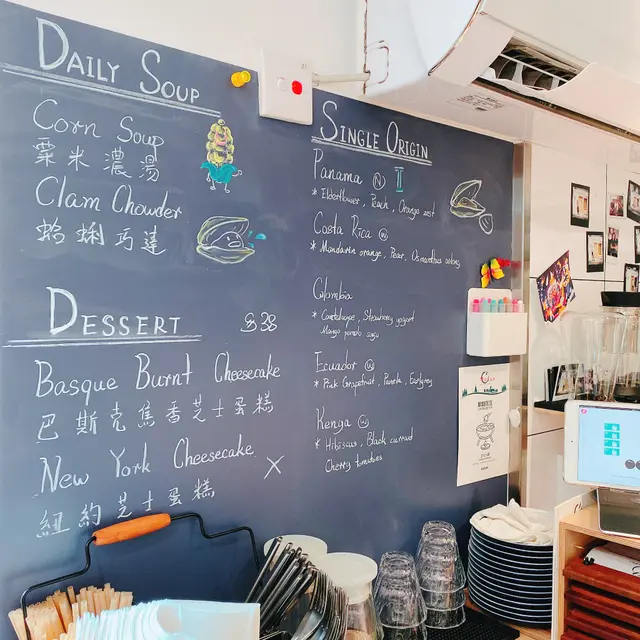 DAILY SOUP
Corn Soup
粟米濃湯
Clam Chowder
蛤蜊巧達
DESSERT
Basque Burnt Cheesecake
巴斯克焦香芝士蛋糕
New York Cheesecake X
紐約芝士蛋糕
SINGLE ORIGIN
Panama
* Elderflower, Peach, Orange zest
Costa Rica
* Mandarin orange, Pear, Osmanthus oolong
Colombia
* Cantaloupe, Strawberry yogurt
Mango pomelo sago
Ecuador
* Pink Grapefruit, Panela, Earl grey
Kenya
* Hibiscus, Black currant
Cherry tomatoes